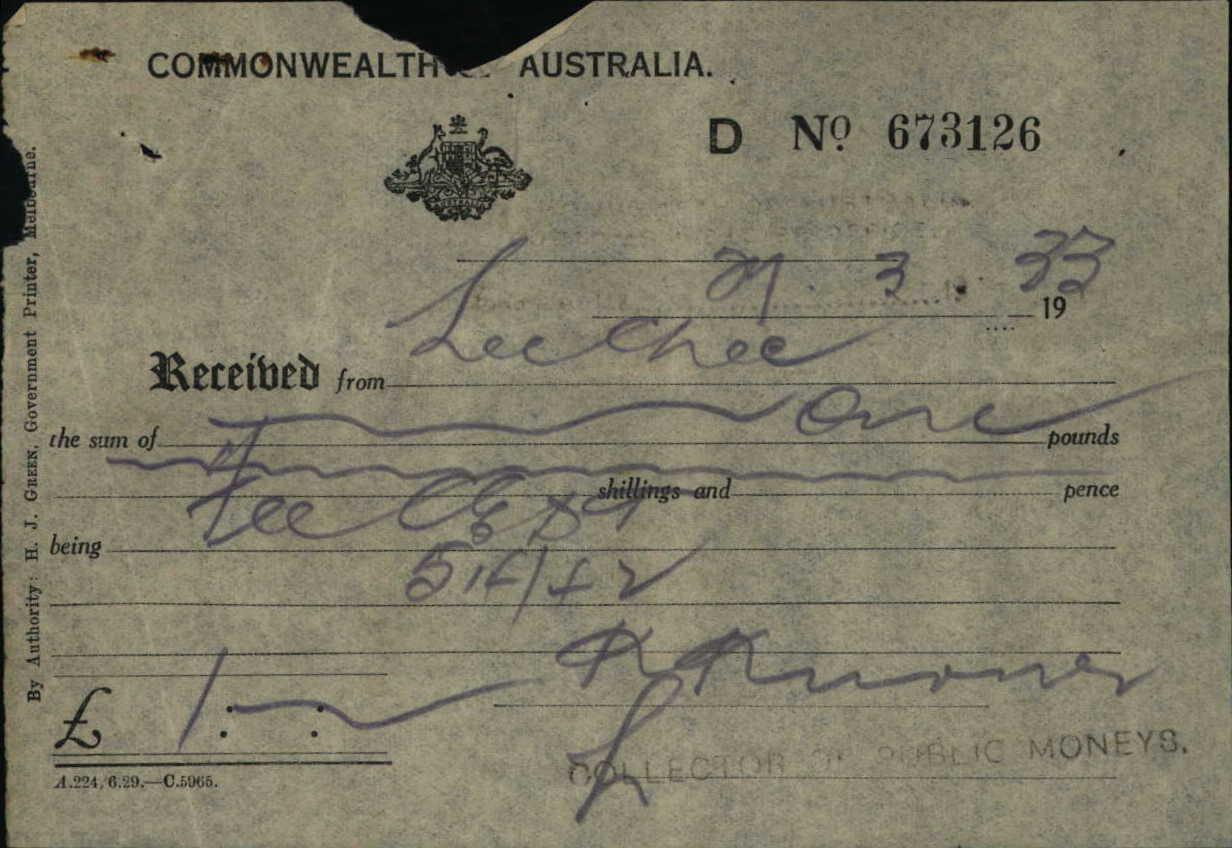 COMMONWEALTH O AUSTRALIA.
D Nº 673126
AUSTRALIA
3 33
19
Received from Lee Chee
the sum of One pounds
shillings and pence
being Fee
£ 1 : :
COLLECTOR OF PUBLIC MONEYS.
A.224/6.29.—C.5965.
By Authority: H. J. GREEN, Government Printer, Melbourne.